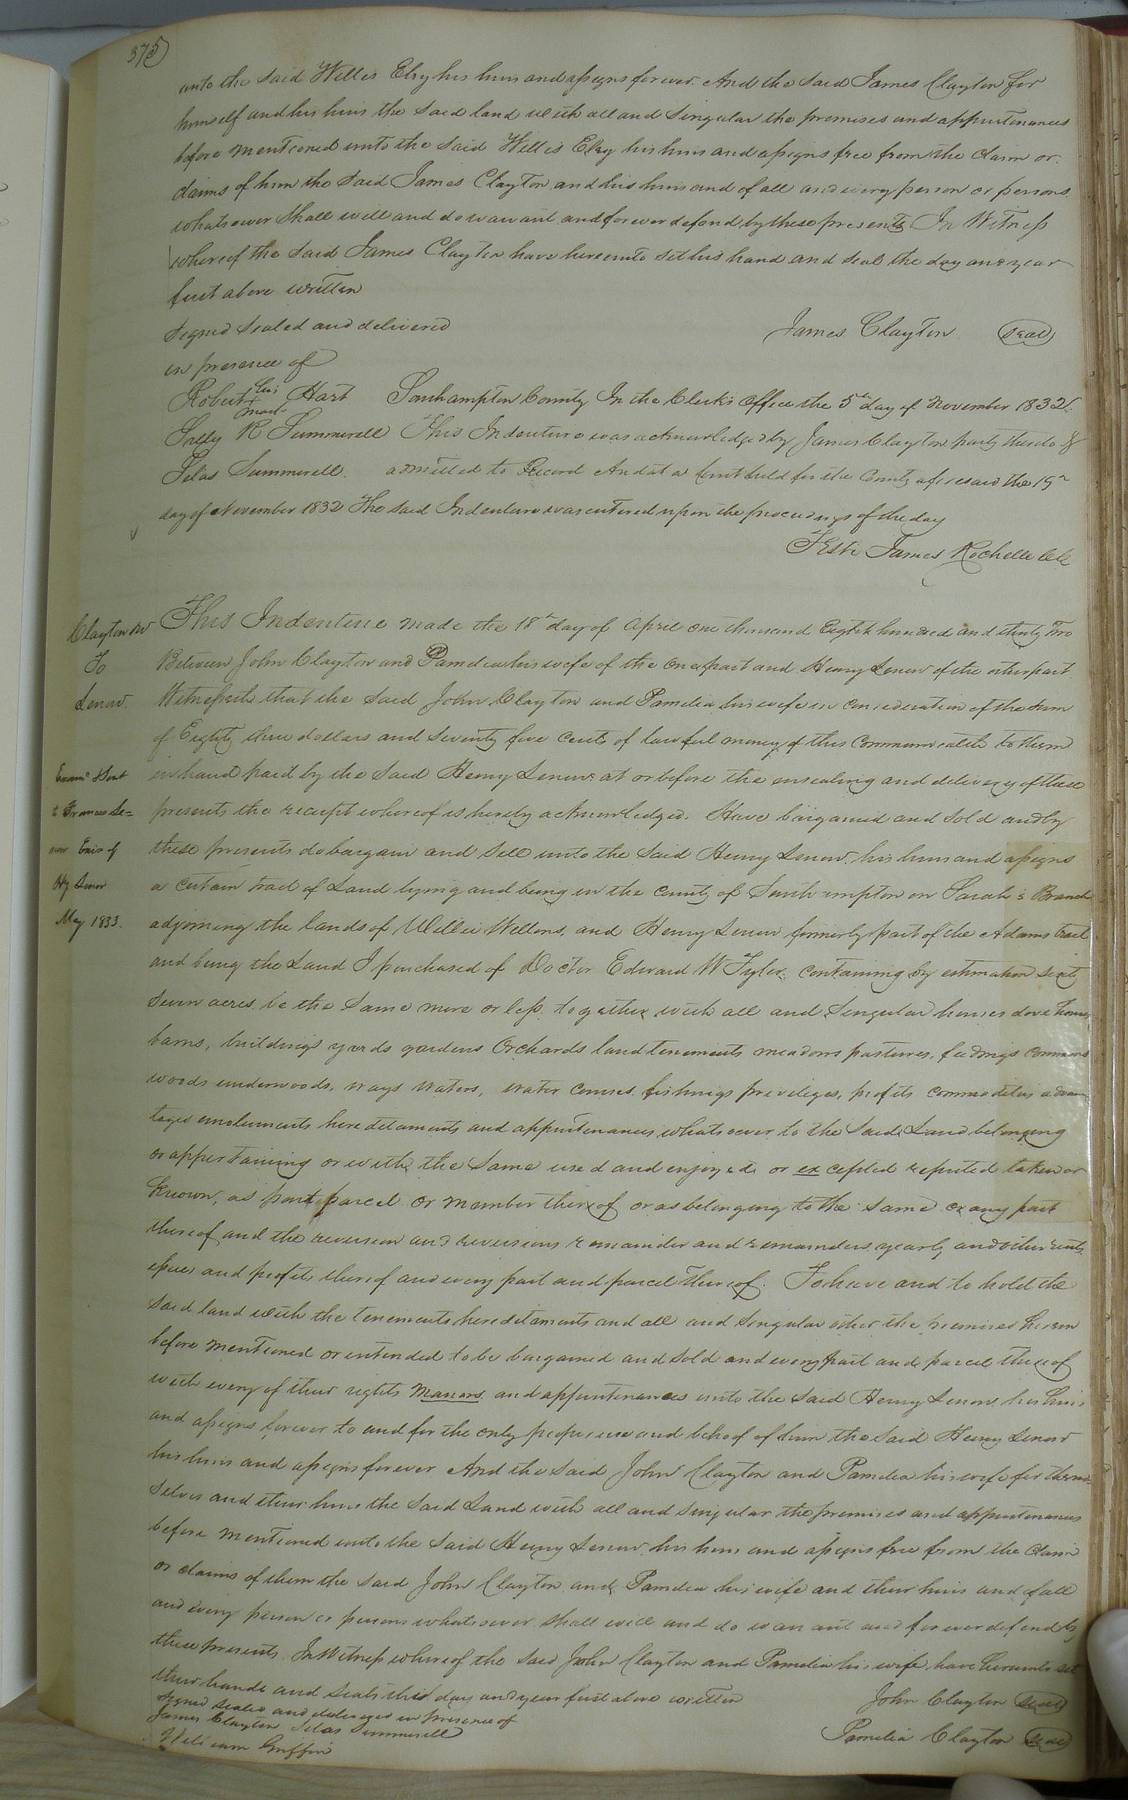 375
unto the said Willis Elsy his heirs and assigns forever. And the said James Clayton for
himself and his heirs the said land with all and Singular the premises and appurtenances
before mentioned unto the said Willis Elsy his heirs and assigns free from the claim or
claims of him the said James Clayton and his heirs and of all and every person or persons
whatsoever Shall will and do warrant and forever defend by these presents In Witness
whereof the said James Clayton have hereunto set his hand and seal the day and year
first above written
Signed Sealed and delivered
James Clayton (Seal)
in presence of
Robert his mark Hart Southampton County In the Clerk's Office the 5th day of November 1832.
Sally R Summerell This Indenture was acknowledged by James Clayton party thereto &
Silas Summerell. admitted to Record And at a Court held for the County aforesaid the 19th
day of November 1832 The said Indenture was entered upon the proceedings of the day
Teste James Rochelle CC
Clayton &w
To
Lenow.
This Indenture made the 18th day of April one thousand Eight hundred and thirty Two
Between John Clayton and Pamelia his wife of the one part and Henry Lenow of the other part
Witnesseth that the said John Clayton and Pamelia his wife in consideration of the sum
of Eighty three dollars and Seventy five Cents of lawful money of this Commonwealth to them
Exam'd & sent
to Frances Le=
now Exix of
Hy Lenow
May 1833.
in hand paid by the said Henry Lenow at or before the ensealing and delivery of these
presents the receipt whereof is hereby acknowledged. Have bargained and Sold and by
these presents do bargain and Sell unto the said Henry Lenow his heirs and assigns
a certain tract of Land lying and being in the County of Southampton on Sarah's Branch
adjoining the lands of Willie Wellons, and Henry Lenow formerly part of the Adams tract
and being the Land I purchased of Doctor Edward W Tyler, containing by estimation sixty
Seven acres be the Same more or less together with all and Singular houses dove houses
barns, buildings yards gardens Orchards land tenements meadows pastures, feedings commons
woods underwoods, ways waters, water courses fishings privileges, profits commodities advan
tages emoluments hereditaments and appurtenances whatsoever to the said Land belonging
or appertaining or with the Same used and enjoyed or excepted reputed taken or
known, as part parcel or member thereof or as belonging to the same or any part
thereof and the reversion and reversions remainder and remainders yearly and other rents
issues and profits thereof and every part and parcel thereof. To have and to hold the
said land with the tenements hereditaments and all and Singular other the premises herein
before mentioned or intended to be bargained and Sold and every part and parcel thereof
with every of their rights Manors and appurtenances unto the said Henry Lenow his heirs
and assigns forever to and for the only proper use and behoof of him the said Henry Lenow
his heirs and assigns forever And the said John Clayton and Pamelia his wife for them=
selves and their heirs the said Land with all and singular the premises and appurtenances
before mentioned unto the said Henry Lenow his heirs and assigns free from the claim
or claims of them the said John Clayton and Pamelia his wife and their heirs and of all
and every person or persons whatsoever shall will and do warrant and forever defend by
these presents. In Witness whereof the said John Clayton and Pamelia his wife have hereunto set
their hands and seals this day and year first above written
John Clayton (Seal)
Signed sealed and delivered in presence of
James Clayton Silas Summerell
Pamelia Clayton (Seal)
William Griffin